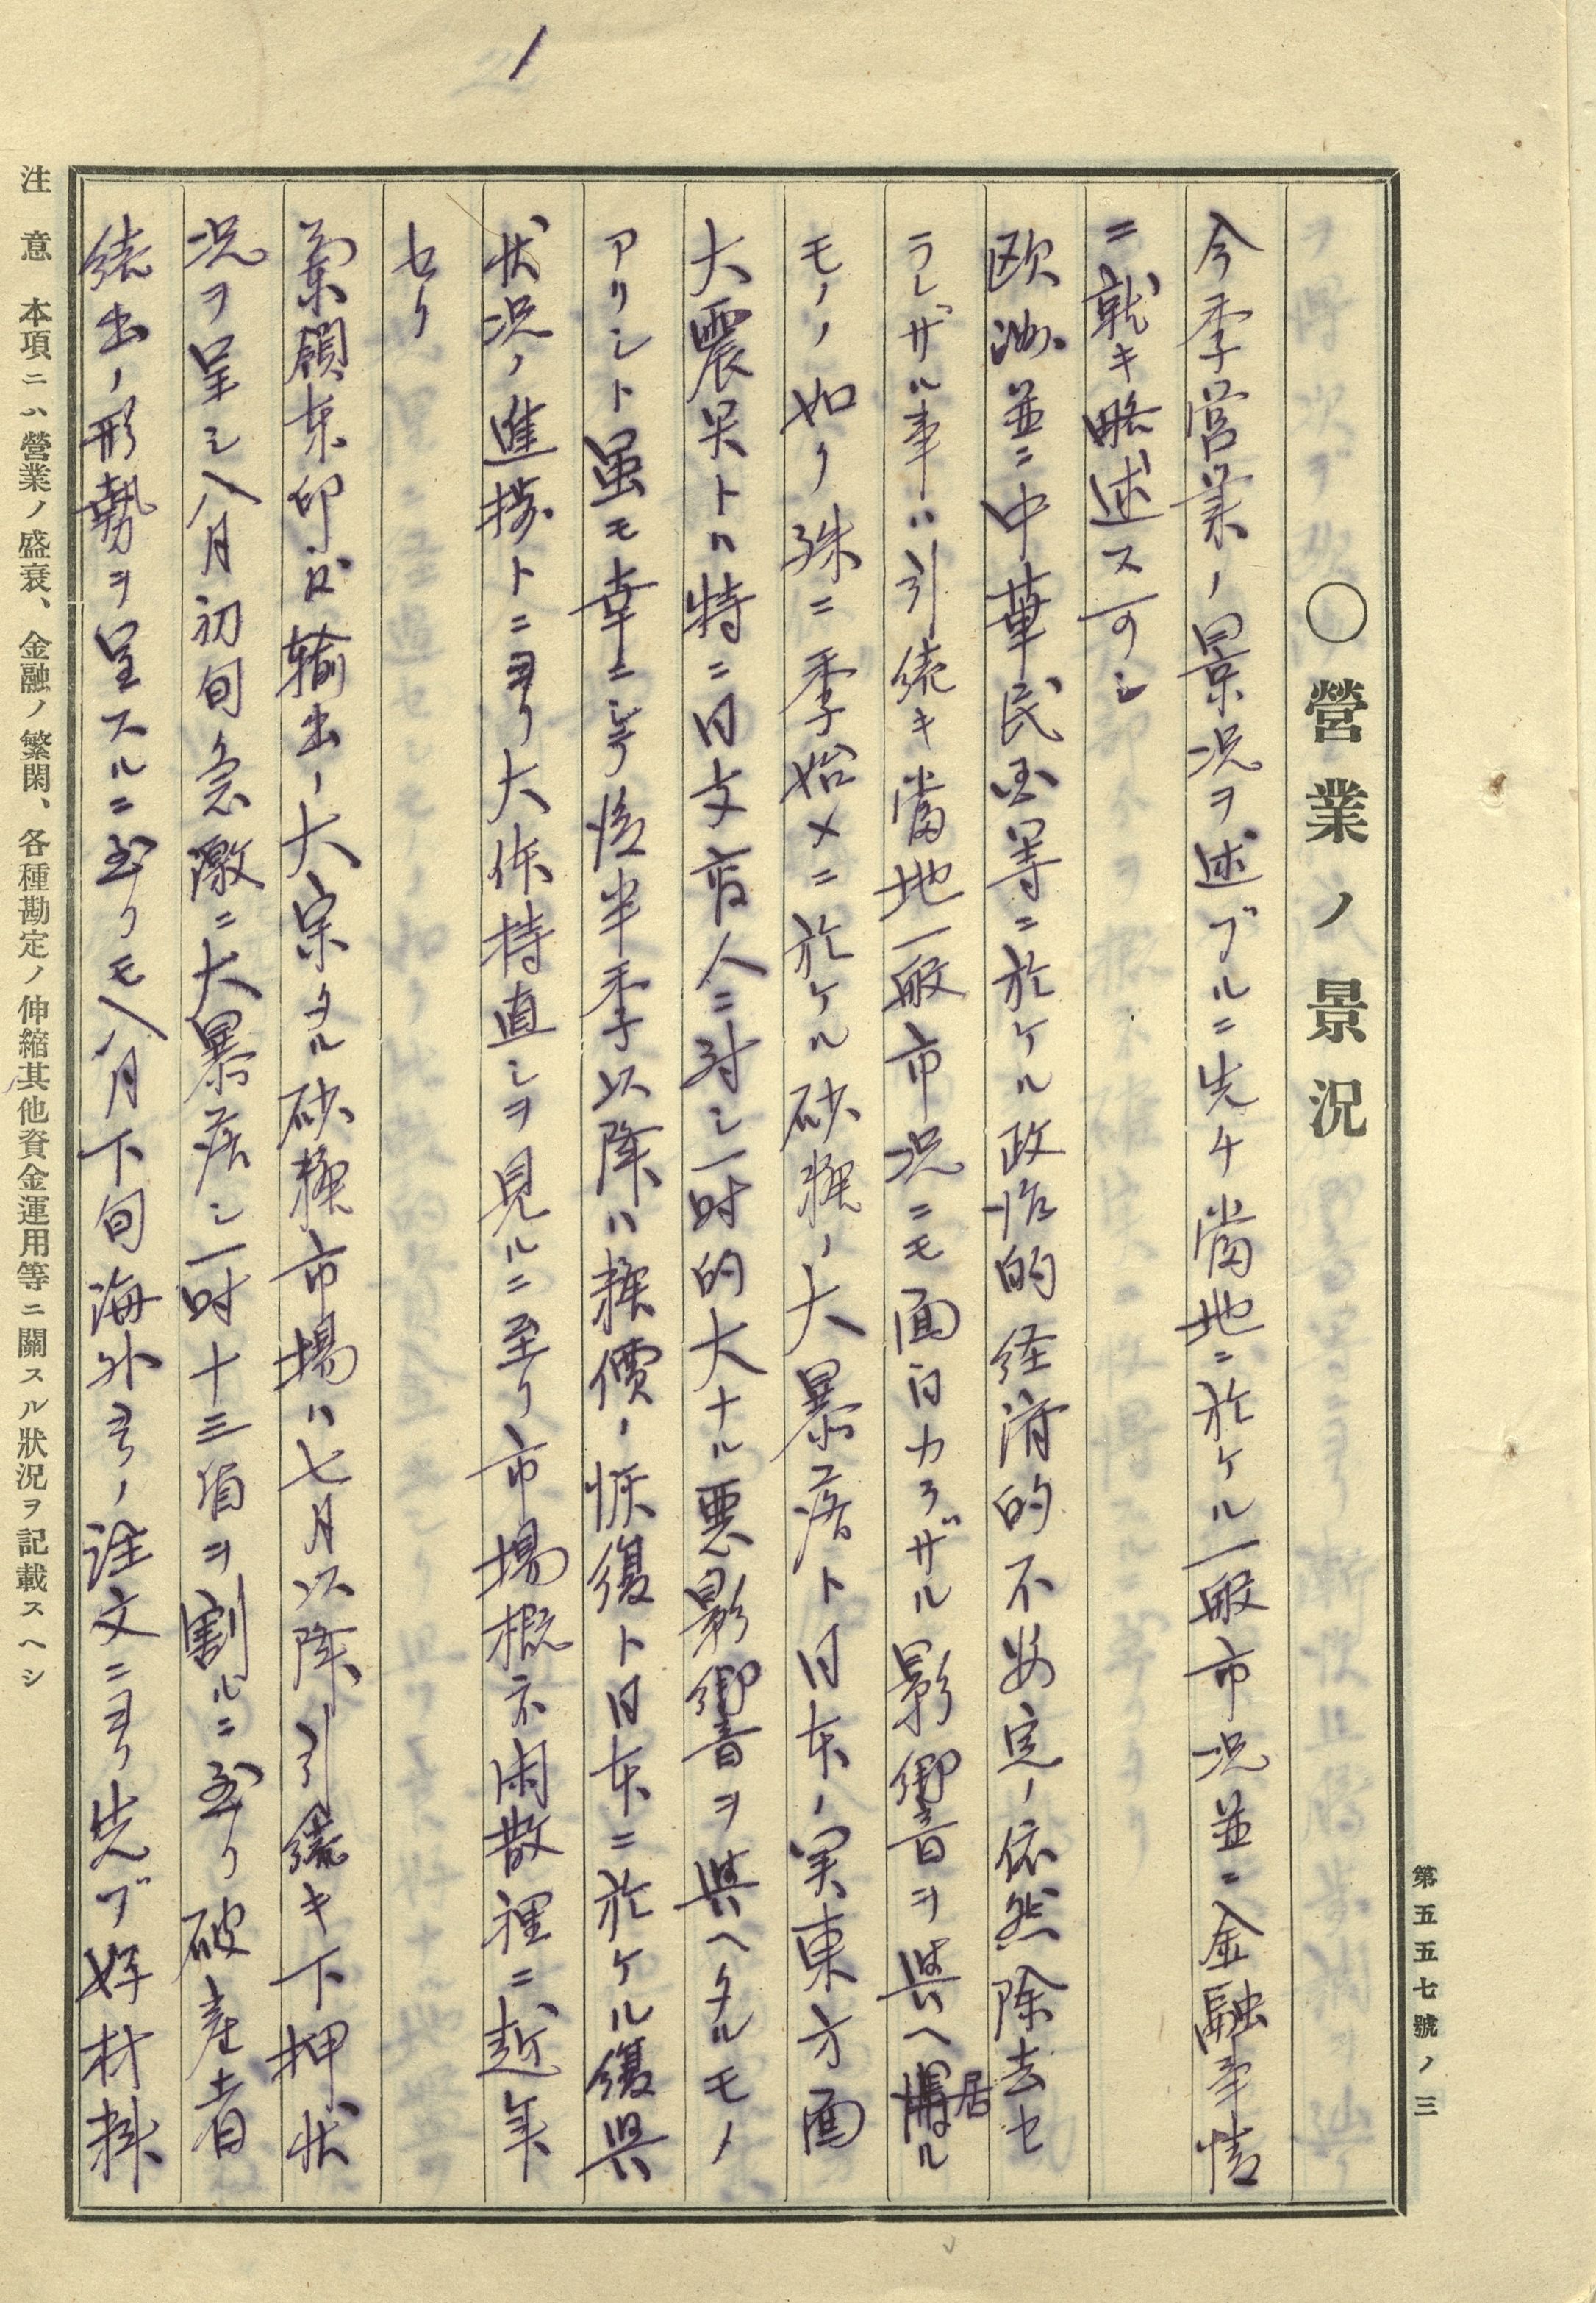 第五五七號ノ三
〇營業ノ景況
今季営業ノ景况ヲ述ブルニ先チ當地ニ於ケル一般市况並ニ金融事情
ニ就キ略述ス可シ
欧洲並ニ中華民国等ニ於ケル政治的経済的不安定ノ依然除去セ
ラレザル事ハ引続キ當地一般市况ニモ面白カラザル影響ヲ與ヘ居ル
モノノ如ク殊ニ季始メニ於ケル砂糖ノ大暴落ト日本ノ関東方面
大震災トハ特ニ日支商人ニ対シ一時的大ナル悪影響ヲ與ヘタルモノ
アリシト虽モ幸ニシテ後半季以降ハ糖價ノ恢復ト日本ニ於ケル復興
状况ノ進捗トニヨリ大体持直シヲ見ルニ至リ市場概ネ閑散裡ニ越年
セリ
蘭領東印度輸出ノ大宗タル砂糖市場ハ七月以降引續キ下押状
况ヲ呈シ八月初旬急激ニ大暴落シ一時十三盾ヲ割ルニ至リ破産者
続出ノ形勢ヲ呈スルニ至リモ八月下旬海外ヨリノ註文ニヨリ先ヅ好材料
注意 本項ニハ營業ノ盛衰、金融ノ繁閑、各種勘定ノ伸縮其他資金運用等ニ關スル狀況ヲ記載スヘシ